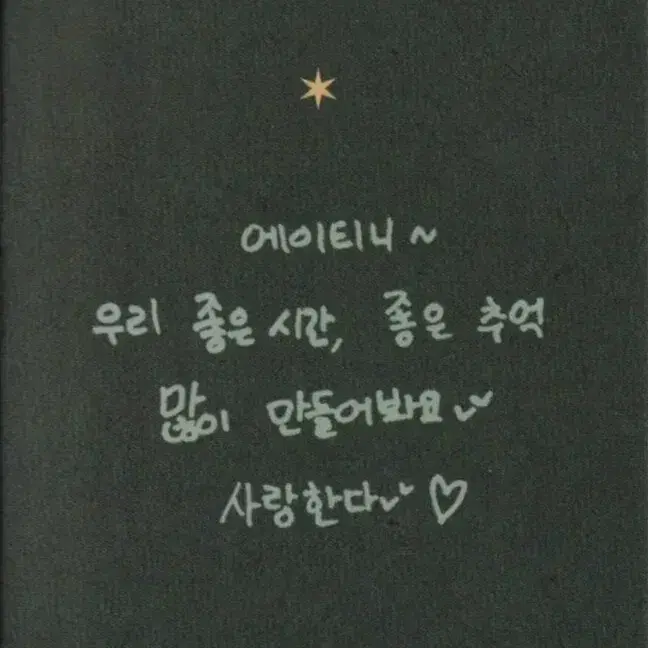 에이티니~
우리 좋은 시간, 좋은 추억
많이 만들어봐요✓✓
사랑한다✓✓ ♡